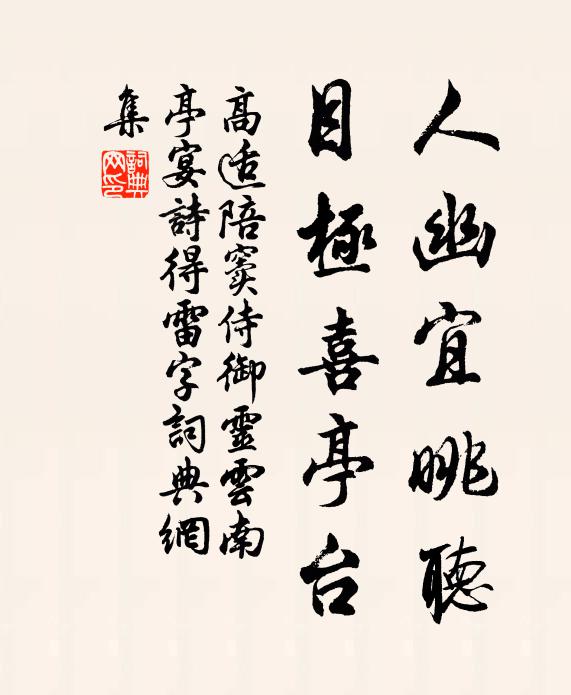 人幽宜眺聽
目極喜亭台
高适陪竇侍御靈雲南
亭宴詩得雷字詞典網
集
詞典網印